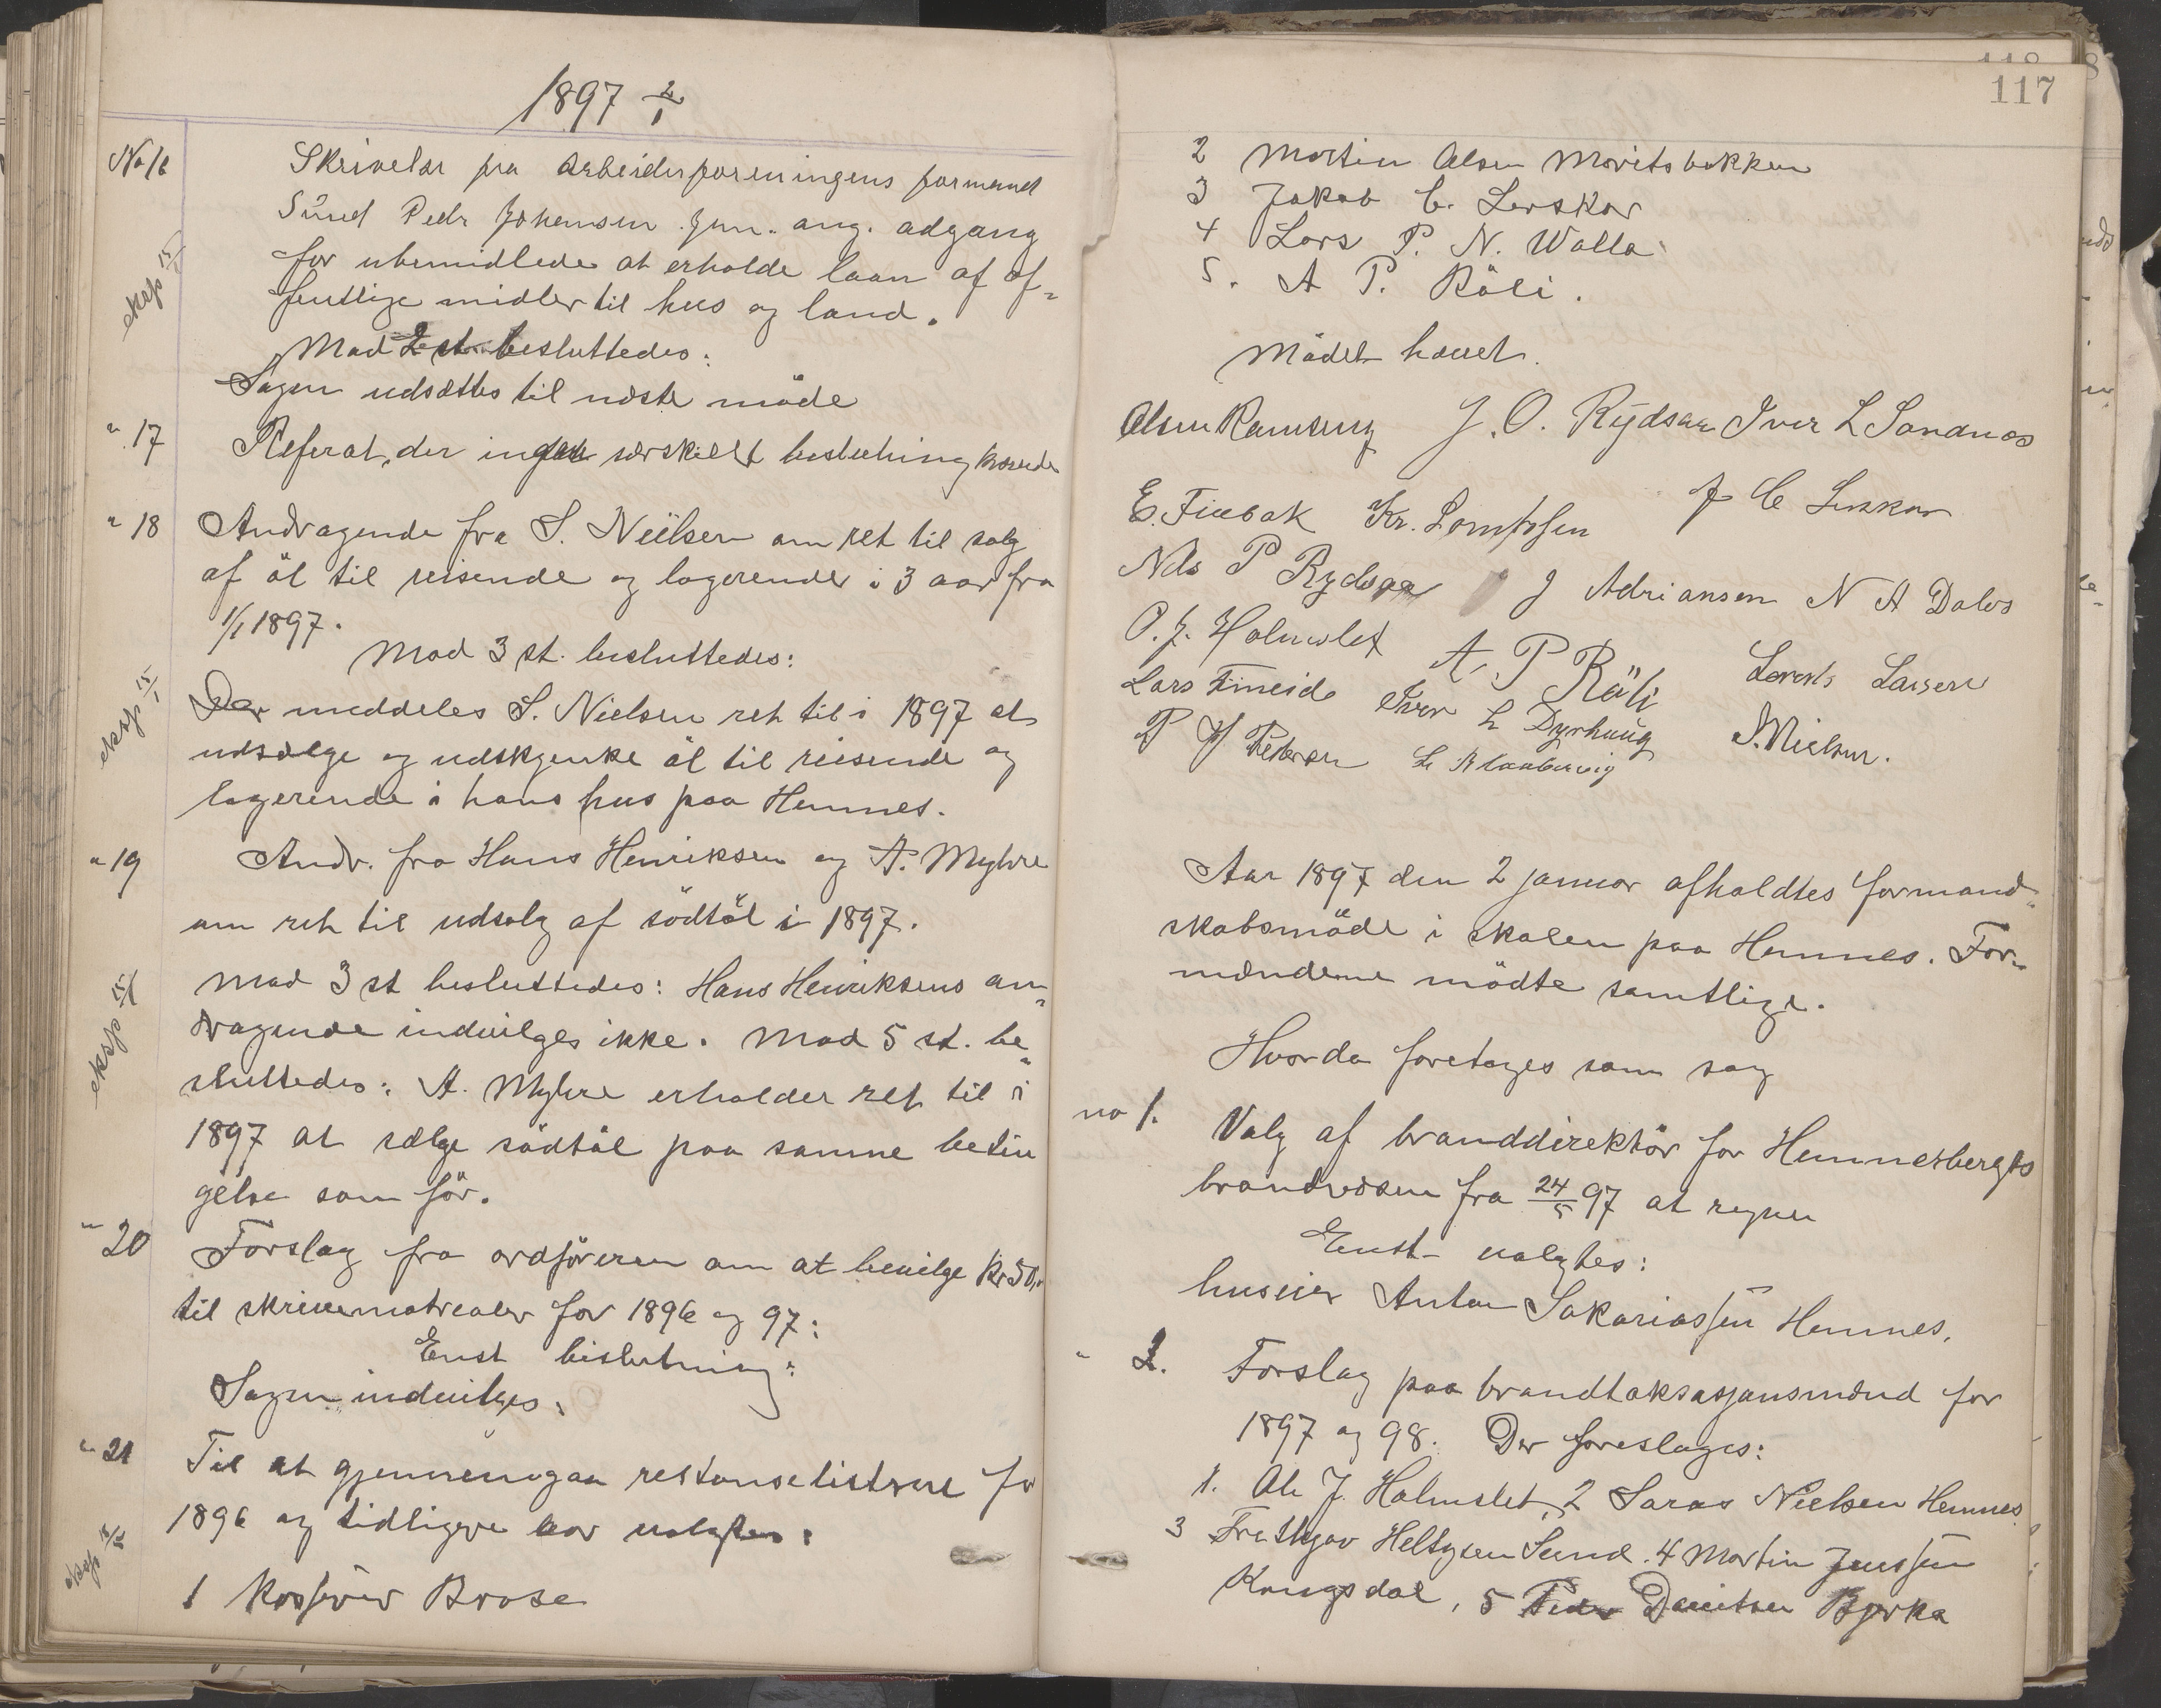 1897 2/1
No 16
Skrivelse fra arbeiderforeningens formand
Sund Peder Johansen Jun. ang. adgang
eksp 15/1
for ubemidlede at erholde laan af of-
fentlige midler til hus og land.
Mod 2 st besluttedes:
Sagen udsættes til næste møde
" 17
Referat, der ingen særskilt beslutning krævede
" 18
Andragende fra S. Nielsen om ret til salg
af öl til reisende og logerende i 3 aar fra
1/1 1897.
Mod 3 st. besluttedes:
eksp 15/1
Der meddeles S. Nielsen ret til i 1897 at
udsælge og udskjenke öl til reisende og
logerende i hans hus paa Hemnes.
" 19
Andr. fra Hans Henriksen og A. Myhre
om ret til udsalg af södtöl i 1897.
eksp 15/1
Mod 3 st besluttedes: Hans Henriksens an-
dragende indvilges ikke. Mod 5 st. be-
sluttedes: A. Myhre erholder ret til i
1897 at sælge södtöl paa samme betin
gelse som för.
" 20
Forslag fra ordföreren om at bevilge Kr 50,-
til skrivematrealer for 1896 og 97:
Enst beslutning:
Sagen indvilges.
" 21
Til at gjennemgaa restanselisterne for
1896 og tidligere aar valgtes:
eksp
1 Kasserer Brose
117
2 Martin Olsen Moritsbakken
3 Jakob C. Lerskar
4 Lars P. N. Walla
5. A P. Röli.
Mödet hævet.
Olsen Ramsvig J. O. Rydsaa Iver L Sandnæs
E. Finbak Kr. Lorntsen J C Leskar
Nils P Rydsaa J Adriansen N A Dalos
O. J. Holmslet A. P Röli Lorents Larsen
Lars Fineide Iver L Dyrhaug S. Nielsen.
P H Pedersen L Klaabervig
Aar 1897 den 2 januar afholdtes formand-
skabsmöde i skolen paa Hemnes. For-
mændene mödte samtlige.
Hvorda foretages som sag
no 1.
Valg af branddirektör for Hemnesbergets
brandvæsen fra 24/5 97 at regne
Enst- valgtes:
huseier Anton Sakariassen Hemnes.
" 2.
Forslag paa brandtaksasjonsmænd for
1897 og 98. Der foreslages:
1. Ole J. Holmslet, 2 Saras Nielsen Hemnes
3 Frethjov Heltzen Sund. 4 Martin Jenssen
Kongsdal, 5 Peder Danitsen Bjerka